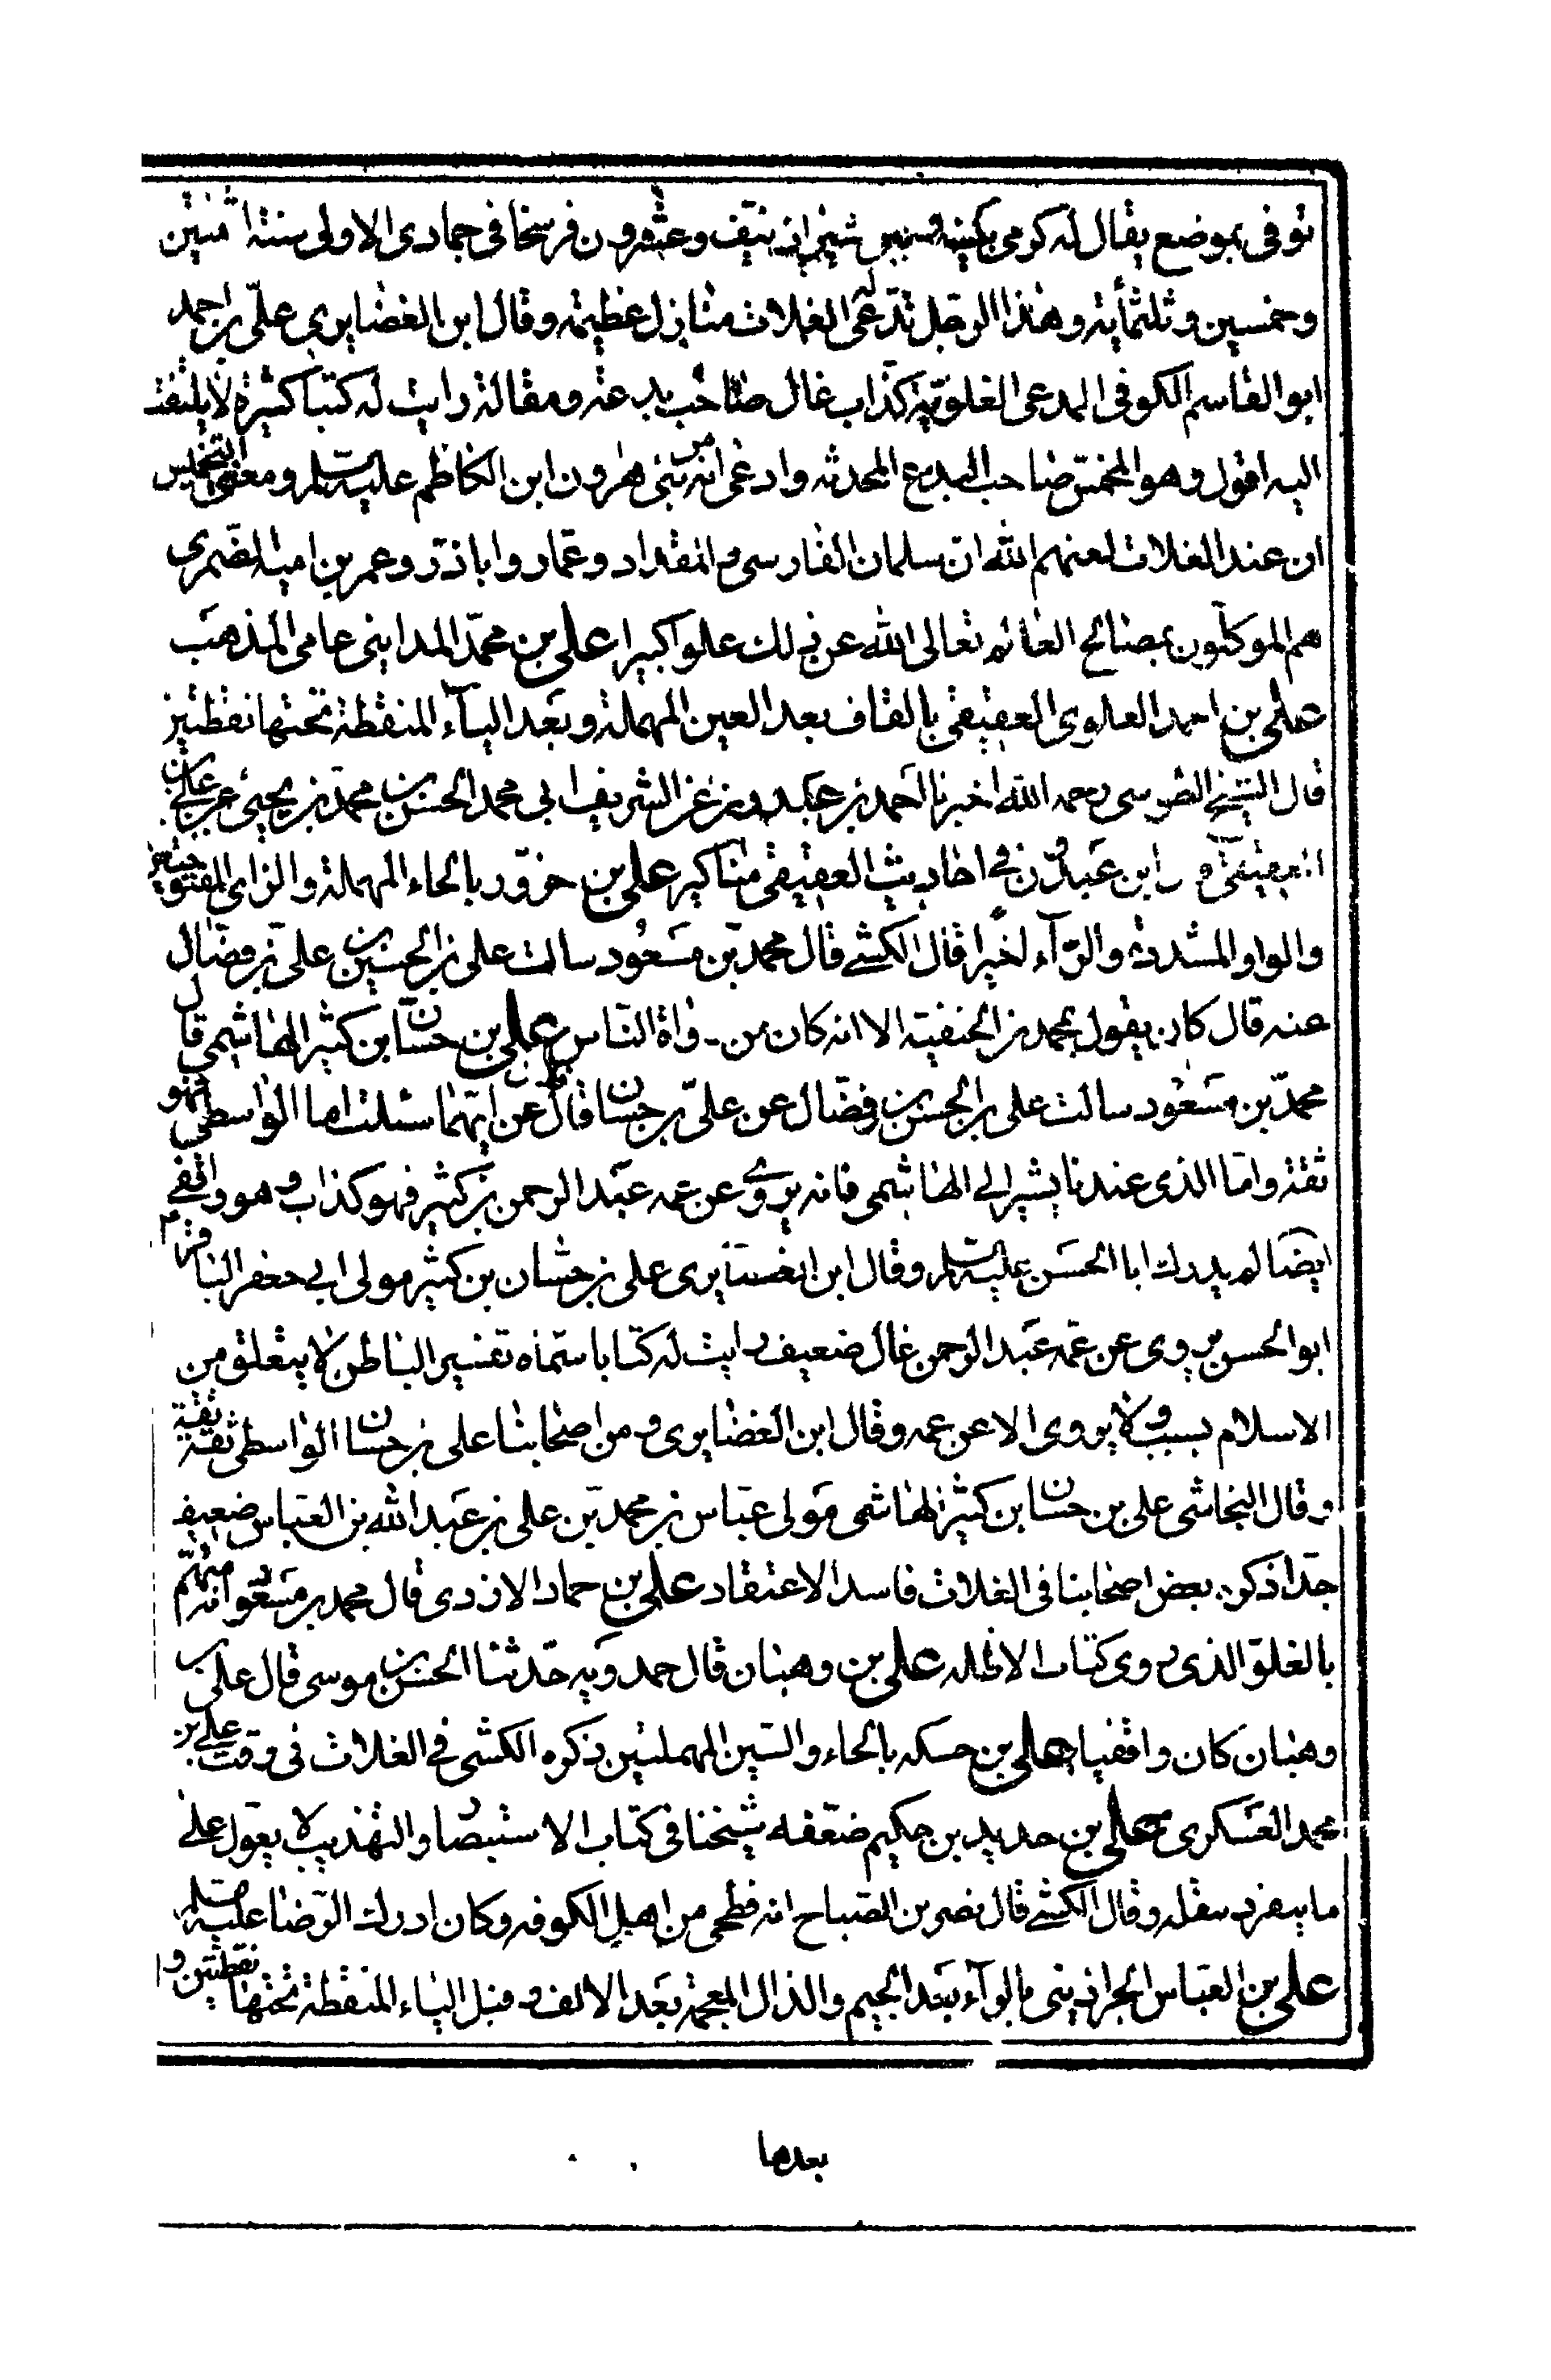 توفى بموضع يقال له كرمى بينه وبين شيراز نيّف وعشرون فرسخا فى جمادى الاولى سنته اثنتين
وخمسين وثلثمأية وهذا الرجل تدّعى له الغلات منازل عظيمة وقال ابن الغضايرى علىّ بن احمد
ابو القاسم الكوفى المدعى العلويّة كذاب غال صاحب بدعة ومقالة رايت له كتبا كثيرة لا يلتفت
اليه اقول وهو المخمّس صاحب البدع المحدثه وادعى انه من بنى هرون ابن الكاظم عليه السلم ومعنى التخميس
ان عند الغلات لعنهم الله انّ سلمان الفارسى والمقداد وعمار واباذر وعمر بن امية الضمرى
هم الموكلون بمصالح العالم تعالى الله عن ذلك علوا كبيرا على بن محمّد المداينى عامى المذهب
على بن احمد العلوى العقيقى بالقاف بعد العين المهملة وبعد الياء المنقطة تحتها نقطتين
قال الشيخ الطوسى رحمه الله اخبرنا احمد بن عبدون عن الشريف ابى محمد الحسن بن محمد بن يحيى عن على بن
العقيقى قال ابن عبدون فى احاديث العقيقى مناكير على بن حزوّر بالحاء المهملة والزاى المفتوحتين
والواو المشددة والرّاء اخيرا قال الكشى قال محمد بن مسعود سالت على بن الحسين بن على بن فضّال
عنه قال كان يقول بمحمد بن الحنفية الا انه كان من رواة النّاس على بن حسّان ابن كثير الهاشمى قال
محمّد بن مسعود سالت على بن الحسن بن فضّال عن علىّ بن حسان قال عن ايّهما سئلت اما الواسطى فهو
ثقة وامّا الذى عندنا يشير الى الهاشمى فانه يروى عن عمه عبد الرحمن بن كثير فهو كذاب وهو واقفى
ايضا لم يدرك ابا الحسن عليه السلم وقال ابن الغضايرى على بن حسّان بن كثير مولى ابى جعفر الباقر ع م
ابو الحسن يروى عن عمّه عبد الرحمن غال ضعيف رايت له كتابا سمّاه تفسير الباطن لا يتعلق من
الاسلام بسبب ولا يروى الا عن عمه وقال ابن الغضايرى ومن اصحابنا على بن حسان الواسطى ثقة ثقة
وقال النجاشى على بن حسان ابن كثير الهاشمى مولى عبّاس بن محمد بن على بن عبد الله بن العباس ضعيف
جدّا ذكره بعض اصحابنا فى الغلات فاسد الاعتقاد على بن حماد الازدى قال محمد بن مسعود انه متهم
بالغلوّ الذى روى كتاب الاظله على بن وهبان قال حمدويه حدّثنا الحسن بن موسى قال على بن
وهبان كان واقفيا على بن حسكه بالحاء والسّين المهملتين ذكره الكشى فى الغلات فى وقت على بن
محمد العسكرى على بن حديد بن حكيم ضعّفه شيخنا فى كتاب الاستبصار والتهذيب لا يعوّل على
ما يتفرد بنقله وقال الكشى قال نصر بن الصّباح انه فطحى من اهل الكوفه وكان ادرك الرّضا عليه السلم
على بن العبّاس الجراذينى بالرّاء بعد الجيم والذال المعجمة بعد الالف وقبل الياء المنقطة تحتها نقطتين و
بعدها